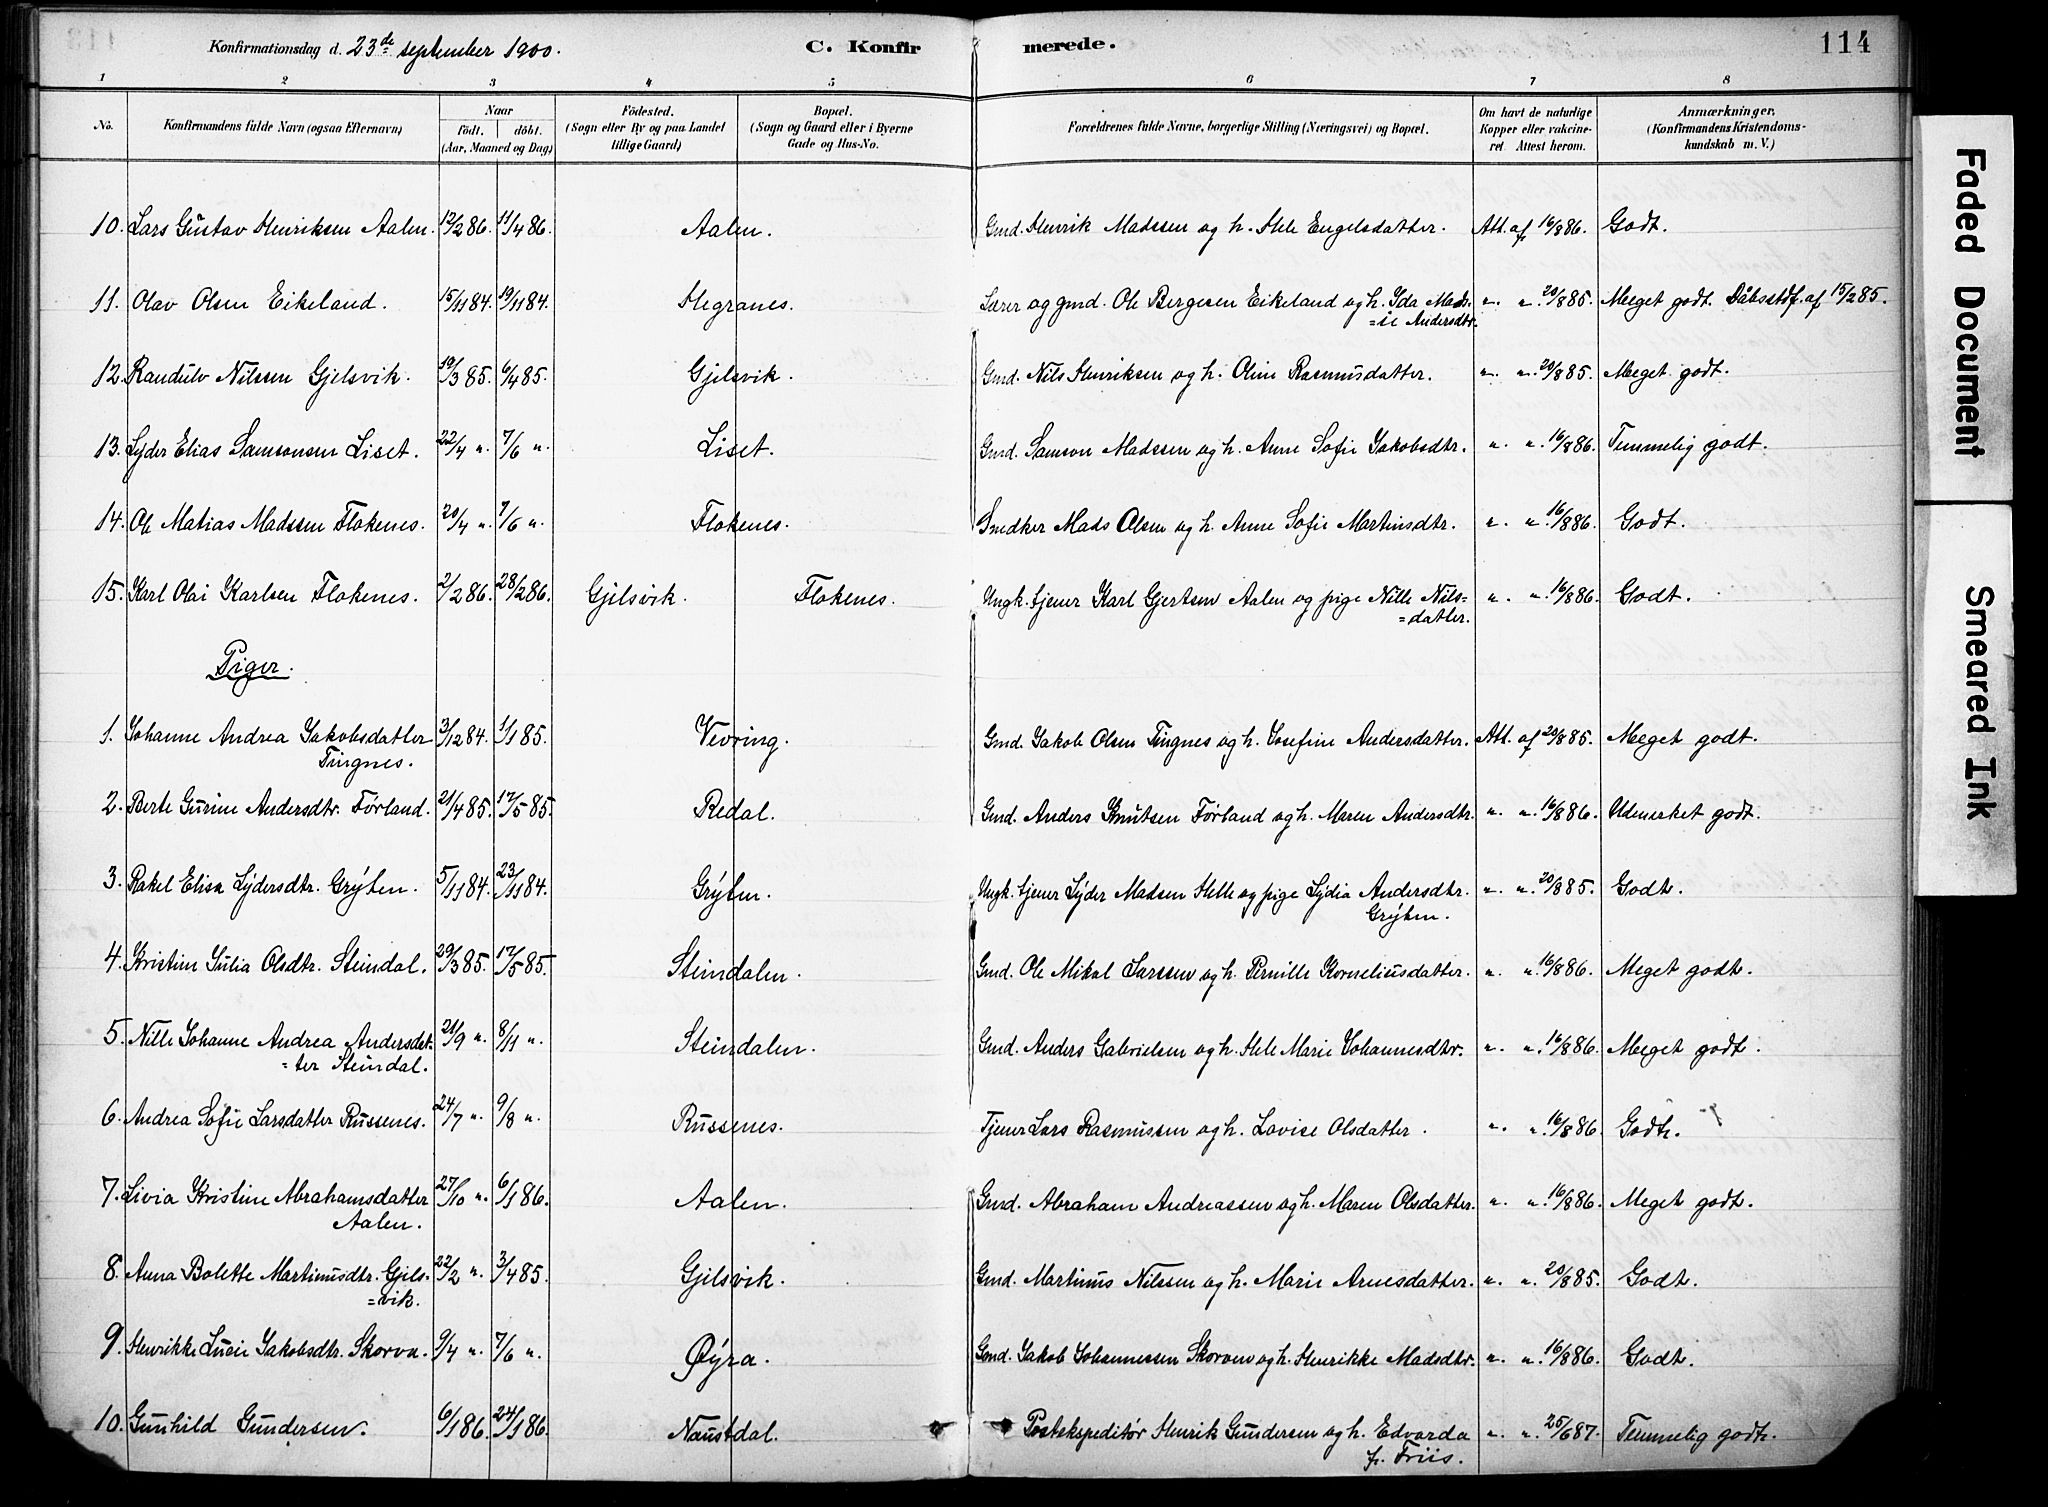 Konfirmationsdag d. 23de september 1900. C. Konfirmerede. 114
1 2 3 4 5 6 7 8
No. Konfirmandens fulde Navn (ogsaa Efternavn) Naar födt. döbt. (Aar, Maaned og Dag) Födested. (Sogn eller By og paa Landet tillige Gaard) Bopæl. (Sogn og Gaard eller i Byerne Gade og Hus-No. Forældrenes fulde Navne, borgerlige Stilling (Næringsvei) og Bopæl. Om havt de naturlige Kopper eller vakcineret. Attest herom. Anmærkninger. (Konfirmandens Kristendomskundskab m. V.)
10. Lars Gustav Henriksen Aalen. 12/2 86. 11/4 86. Aalen. Gmd. Henrik Madssen og h. Hele Engelsdatter. Att. af 16/8 86. Godt.
11. Olav Olsen Eikeland. 15/11 84. 19/11 84. Hegranes. Lærer og gmd. Ole Bergesen Eikeland og h. Ida Mads- „ „ 20/8 85. Meget godt. Dåbsatdf. af 15/2 85.
=ie Andersdtr.
12. Randulv Nilssen Gjelsvik. 19/3 85. 6/4 85. Gjelsvik. Gmd. Nils Henriksen og h. Oline Rasmusdatter. „ „ 20/8 85. Meget godt.
13. Lyder Elias Samsonsen Liset. 22/4 „ 7/6 „ Liset. Gmd. Samson Madssen og h. Anne Sofie Jakobsdtr. „ „ 16/8 86. Temmelig godt.
14. Ole Matias Madssen Flokenes. 20/4 „ 7/6 „ Flokenes. Smedker Mads Olsen og h. Anne Sofie Martinsdtr. „ „ 16/8 86. Godt.
15. Karl Olai Karlsen Flokenes. 2/2 86. 28/2 86. Gjelsvik. Flokenes. Ungk. tjener Karl Gjertsen Aalen og pige Nille Nils= „ „ 16/8 86. Godt.
=datter.
Piger.
1. Johanne Andrea Jakobsdatter 3/12 84. 1/1 85. Vevring. Gmd. Jakob Olsen Tingnes og h. Josefine Andersdatter. Att. af 20/8 85. Meget godt.
Tingnes.
2. Berte Gurine Andersdtr. Førland. 21/4 85. 17/5 85. Redal. Gmd. Anders Knutsen Førland og h. Maren Andersdtr. „ „ 16/8 86. Udmerket godt.
3. Rakel Elisa Lydersdtr. Grýten. 5/11 84. 23/11 84. Grýten. Ungk. tjener Lýder Madsen Helle og pige Lýdia Andersdtr. „ „ 20/8 85. Godt.
Grýten.
4. Kristine Julia Olsdtr. Steindal. 29/3 85. 17/5 85. Steindalen. Gmd. Ole Mikal Larssen og h. Pernille Korneliusdatter. „ „ 16/8 86. Meget godt.
5. Nille Johanne Andrea Andersdat- 21/9 „ 8/11 „ Steindalen. Gmd. Anders Gabrielsen og h. Hele Marie Johannesdtr. „ „ 16/8 86. Meget godt.
=ter Steindal.
6. Andrea Sofie Larsdatter Russenes. 24/7 „ 9/8 „ Russenes. Tjener Lars Rasmussen og h. Lovise Olsdatter. „ „ 16/8 86. Godt.
7. Livia Kristine Abrahamsdatter 27/10 „ 6/1 86. Aalen. Gmd. Abraham Andreassen og h. Maren Olsdatter. „ „ 16/8 86. Meget godt.
Aalen.
8. Anna Bolette Martinusdtr. Gjels- 22/2 „ 3/4 85. Gjelsvik. Gmd. Martinus Nilssen og h. Marie Arnesdatter. „ „ 20/8 85. Godt.
=vik.
9. Henrikke Lucie Jakobsdtr. Skorva. 9/4 „ 7/6 „ Øýra. Gmd. Jakob Johannessen Skorven og h. Henrikke Madsdtr. „ „ 16/8 86. Godt.
10. Gunhild Gundersen. 6/1 86. 24/1 86. Naustdal. Postekspeditør Henrik Gundersen og h. Edvarda „ „ 25/6 87. Temmelig godt.
f. Friis.
Faded Document
Smeared Ink